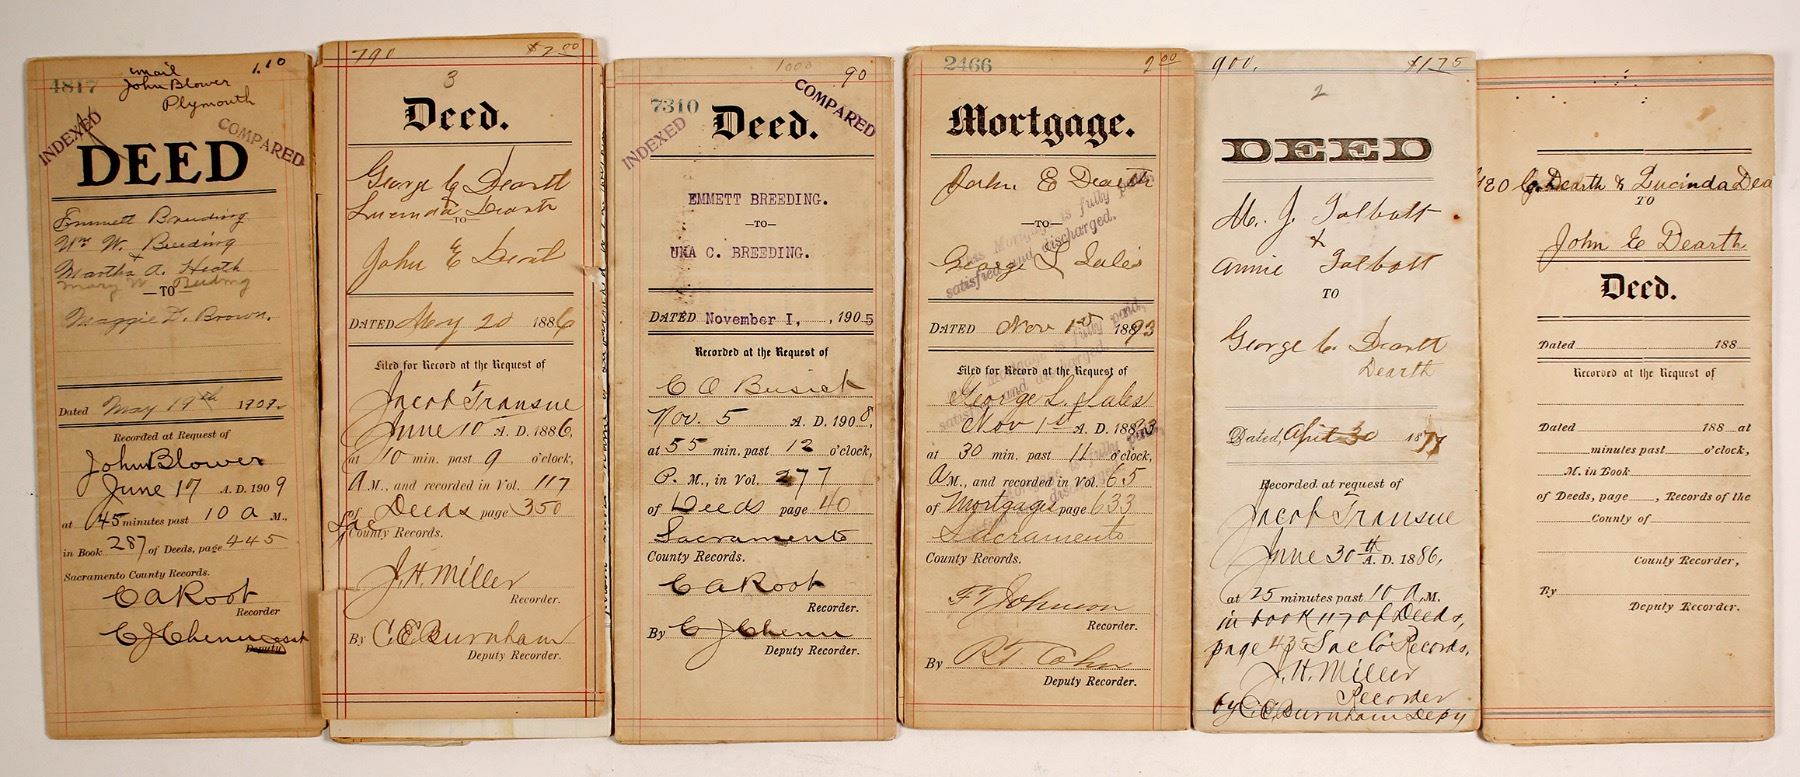 4817
email
John Blower
Plymouth
1.10
INDEXED
COMPARED
DEED
Emmett Breeding
Wm W. Breeding
+
Martha A. Heath
Mary W Breeding
—TO—
Maggie D. Brown.
Dated May 19th 1909.
Recorded at Request of
John Blower
June 17 A.D. 1909
at 45 minutes past 10 a M.,
in Book 287 of Deeds, page 445
Sacramento County Records.
C A Root
Recorder
C J Chenu
Deputy
790
$2.00
3
Deed.
George C Dearth
Lucinda Dearth
—TO—
John E Dearth
DATED May 20 1886
Filed for Record at the Request of
Jacob Transue
June 10 A. D. 1886,
at 10 min. past 9 o'clock,
A M., and recorded in Vol. 117
of Deeds page 350
Sac County Records.
J.H. Miller
Recorder.
By C. E. Burnham
Deputy Recorder.
1000
90
7310
INDEXED
COMPARED
Deed.
EMMETT BREEDING.
—TO—
UNA C. BREEDING.
DATED November I, , 1905
Recorded at the Request of
C O Busick
Nov. 5 A. D. 1908,
at 55 min. past 12 o'clock,
P. M., in Vol. 277
of Deeds page 40
Sacramento
County Records.
C A Root
Recorder.
By C J Chenu
Deputy Recorder.
2466
2.00
Mortgage.
John E Dearth
—TO—
George L Sales
DATED Nov 1st 1893
Filed for Record at the Request of
George L. Sales
Nov 1st A. D. 1893
at 30 min. past 11 o'clock,
A M., and recorded in Vol. 65
of Mortgages page 633
Sacramento
County Records.
Recorder.
By
Deputy Recorder.
Mortgage is fully paid,
satisfied and discharged.
900.
$1.75
2
DEED
M. J. Talbott
+
Annie Talbott
TO
George C. Dearth
Dearth
Dated, April 30 1877
Recorded at request of
Jacob Transue
June 30th A. D. 1886,
at 25 minutes past 10 A.M.
in book 117 of Deeds,
page 435 Sac Co Records,
J. H. Miller
Recorder
by C.E. Burnham Depy
G. Dearth & Lucinda Dea
TO
John E Dearth
Deed.
Dated 188
Recorded at the Request of
Dated 188 at
minutes past o'clock,
M. in Book
of Deeds, page , Records of the
County of
County Recorder,
By
Deputy Recorder.